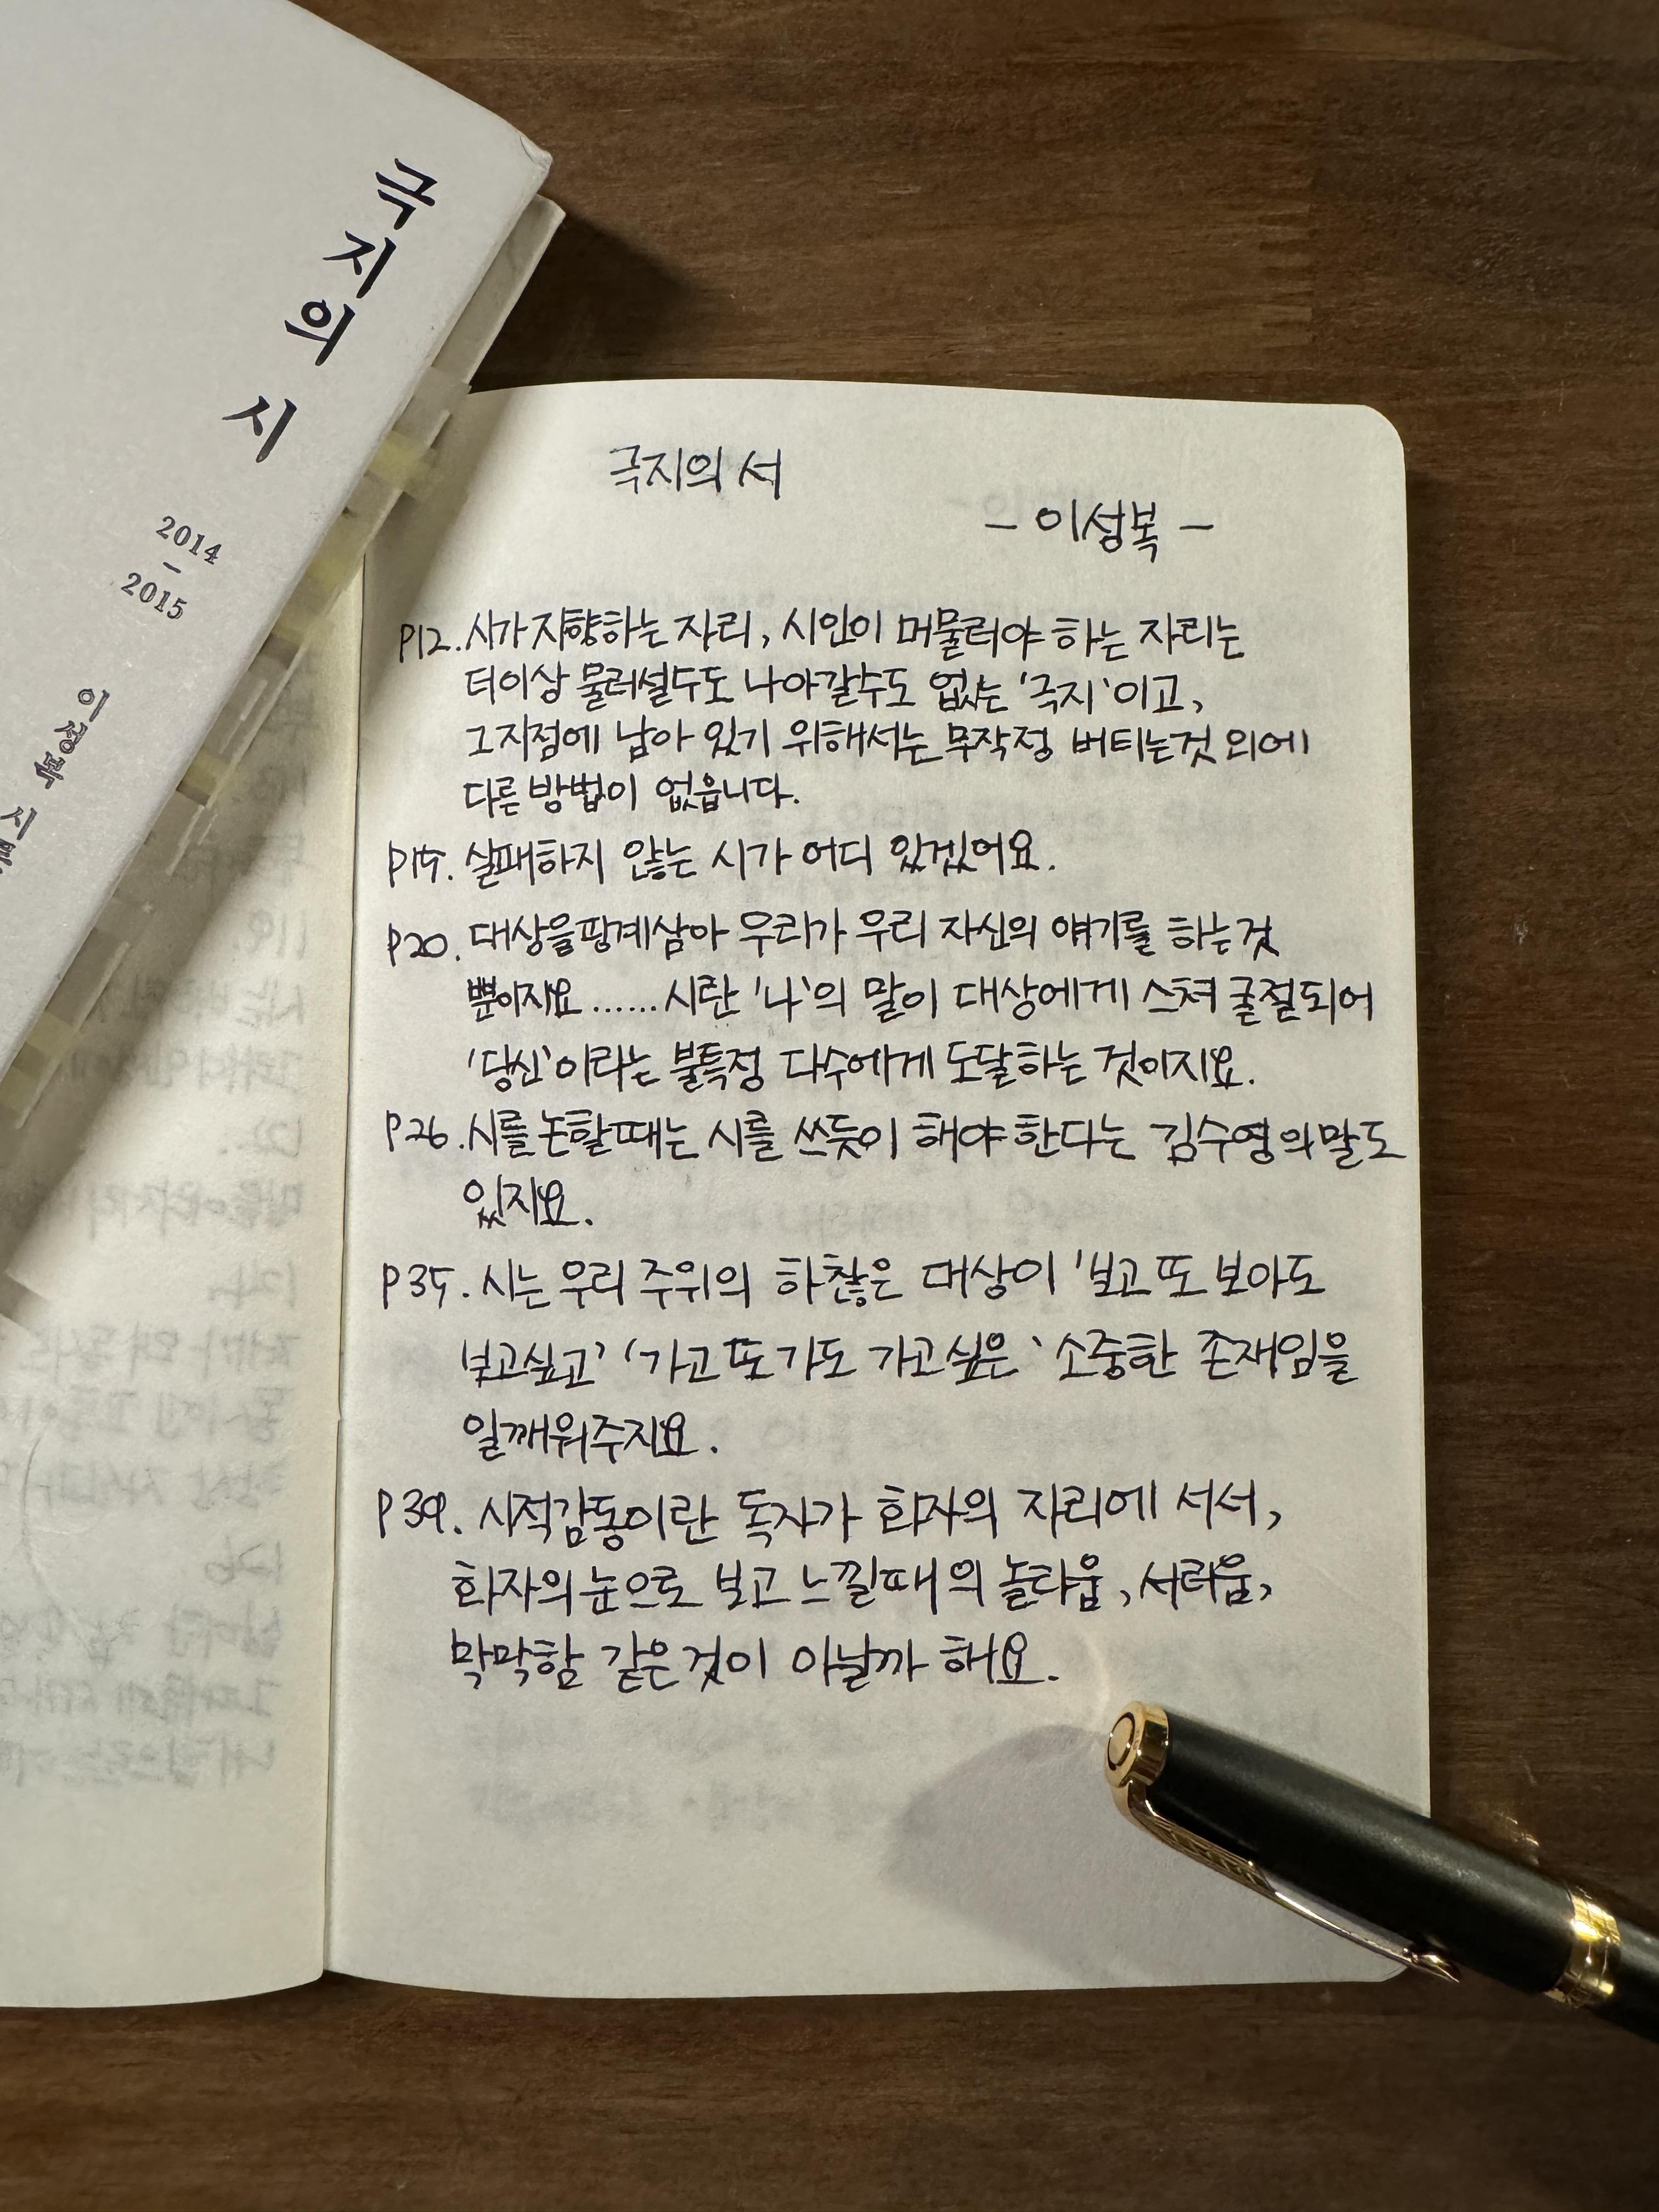 극지의 시
2014
–
2015
이성복 시
극지의 서
– 이성복 –
P12. 시가 지향하는 자리, 시인이 머물러야 하는 자리는
더이상 물러설수도 나아갈수도 없는 '극지'이고,
그지점에 남아 있기 위해서는 무작정 버티는것 외에
다른 방법이 없읍니다.
P15. 실패하지 않는 시가 어디 있겠어요.
P20. 대상을핑계삼아 우리가 우리 자신의 얘기를 하는것
뿐이지요......시란 '나'의 말이 대상에게 스쳐 굴절되어
'당신'이라는 불특정 다수에게 도달하는 것이지요.
P26. 시를 논할때는 시를 쓰듯이 해야한다는 김수영의말도
있지요.
P35. 시는 우리 주위의 하찮은 대상이 '보고 또 보아도
보고싶고' '가고 또가도 가고싶은' 소중한 존재임을
일깨워주지요.
P39. 시적감동이란 독자가 화자의 자리에 서서,
화자의눈으로 보고 느낄때의 놀라움, 서러움,
막막함 같은것이 아닐까 해요.